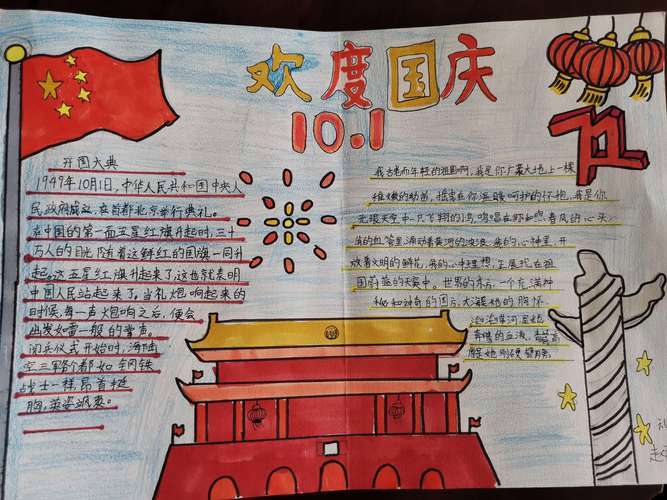 欢度国庆
10.1
开国大典
1949年10月1日,中华人民共和国中央人
民政府成立,在首都北京举行典礼。
在中国的第一面五星红旗升起时,三十
万人的目光随着这鲜红的国旗一同升
起。这五星红旗升起来了,这也就表明
中国人民站起来了。当礼炮响起来的
时候,每一声炮响之后,便会
出发如雷一般的掌声。
阅兵仪式开始时,海陆
空三军各个都如钢铁
战士一样,昂首挺
胸,英姿飒爽。
我古老而年轻的祖国啊,我是你广袤大地上一棵
稚嫩的幼苗,摇曳在你温暖呵护的怀抱,我是你
无垠天空中一只飞翔的鸟,鸣唱在你和煦春风的心头,
我的血管里涌动着黄河的波浪,我的心神里,开
放着文明的鲜花,我的心中理想,正展现在祖
国蔚蓝的天空中,世界的东方,一个充满神
秘和神奇的国方,大海是她的胸怀,